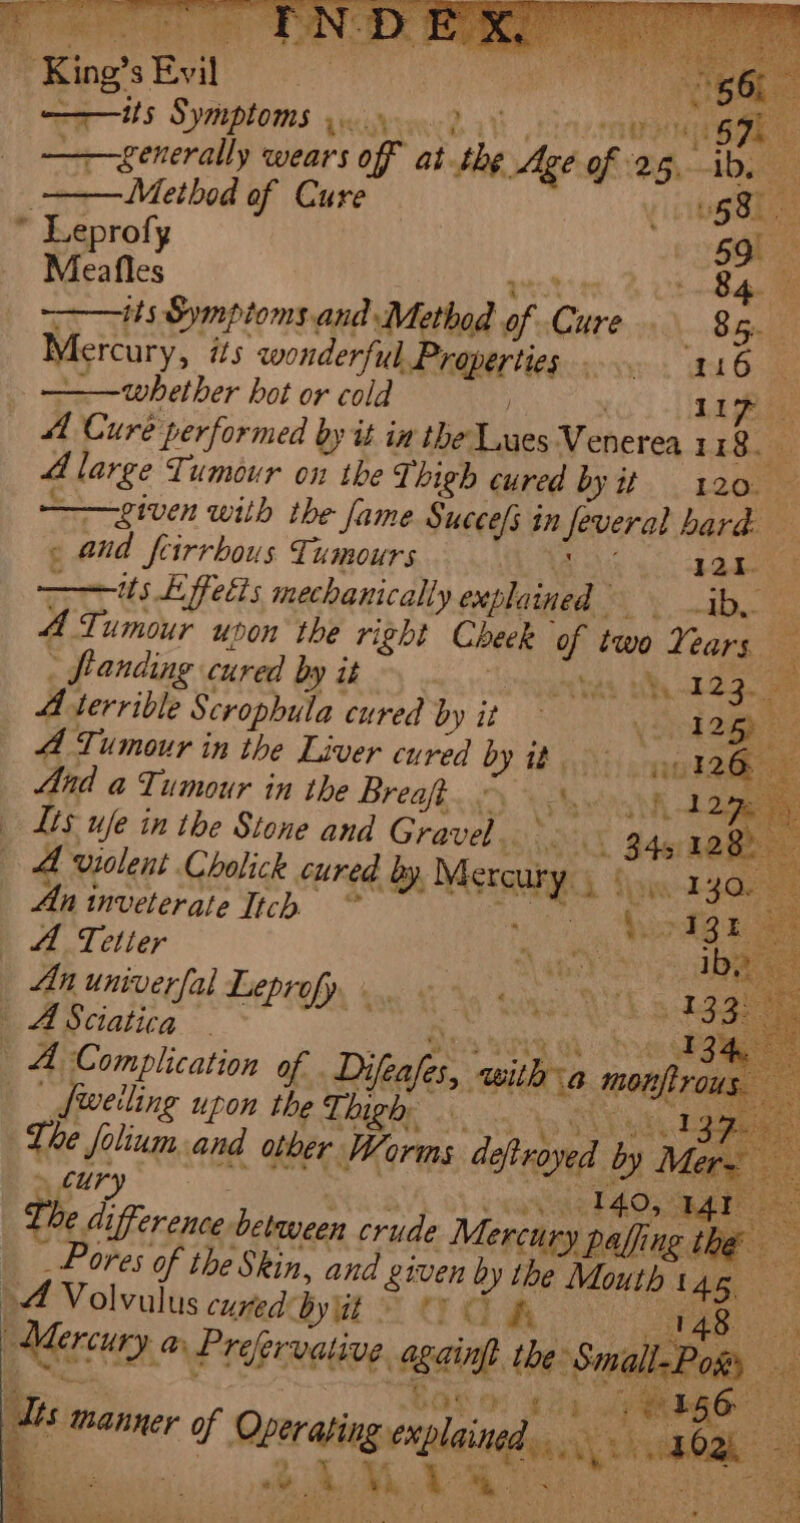 INDEX.
King's Evil 56
——its Symptoms 57
——generally wears off at the Age of 25. ib.
——Method of Cure 58
Leproſy 59
Meaſles 84
——its Symptoms and Method of Cure 85
Mercury, its wonderful Properties 116
——whether hot or cold 117
A Cure performed by it in the Lues Venerea 118.
A large Tumour on the Thigh cured by it 120
——given with the ſame Succeſs in ſeveral hard
and ſcirrhous Tumours 121
——its Effects mechanically explained ib.
A Tumour upon the right Cheek of two Years
ſtanding cured by it 123
A terrible Scrophula cured by it 125
A Tumour in the Liver cured by it 126
And a Tumour in the Breaſt 127
Its uſe in the Stone and Gravel 34, 128
A violent Cholick cured by Mercury 130.
An inveterate Itch 131
A Tetter ib.
An univerſal Leproſy 133
A Sciatica 134
A Complication of Diſeaſes, with a monſtrous
ſwelling upon the Thigh 137
The ſolium and other Worms deſtroyed by Mer-
cury 140, 141
The difference between crude Mercury paſſing the
Pores of the Skin, and given by the Mouth 145
A Volvulus cured by it 148
Mercury a Preſervative againſt the Small-Pox
156
Its manner of Operating explained 162